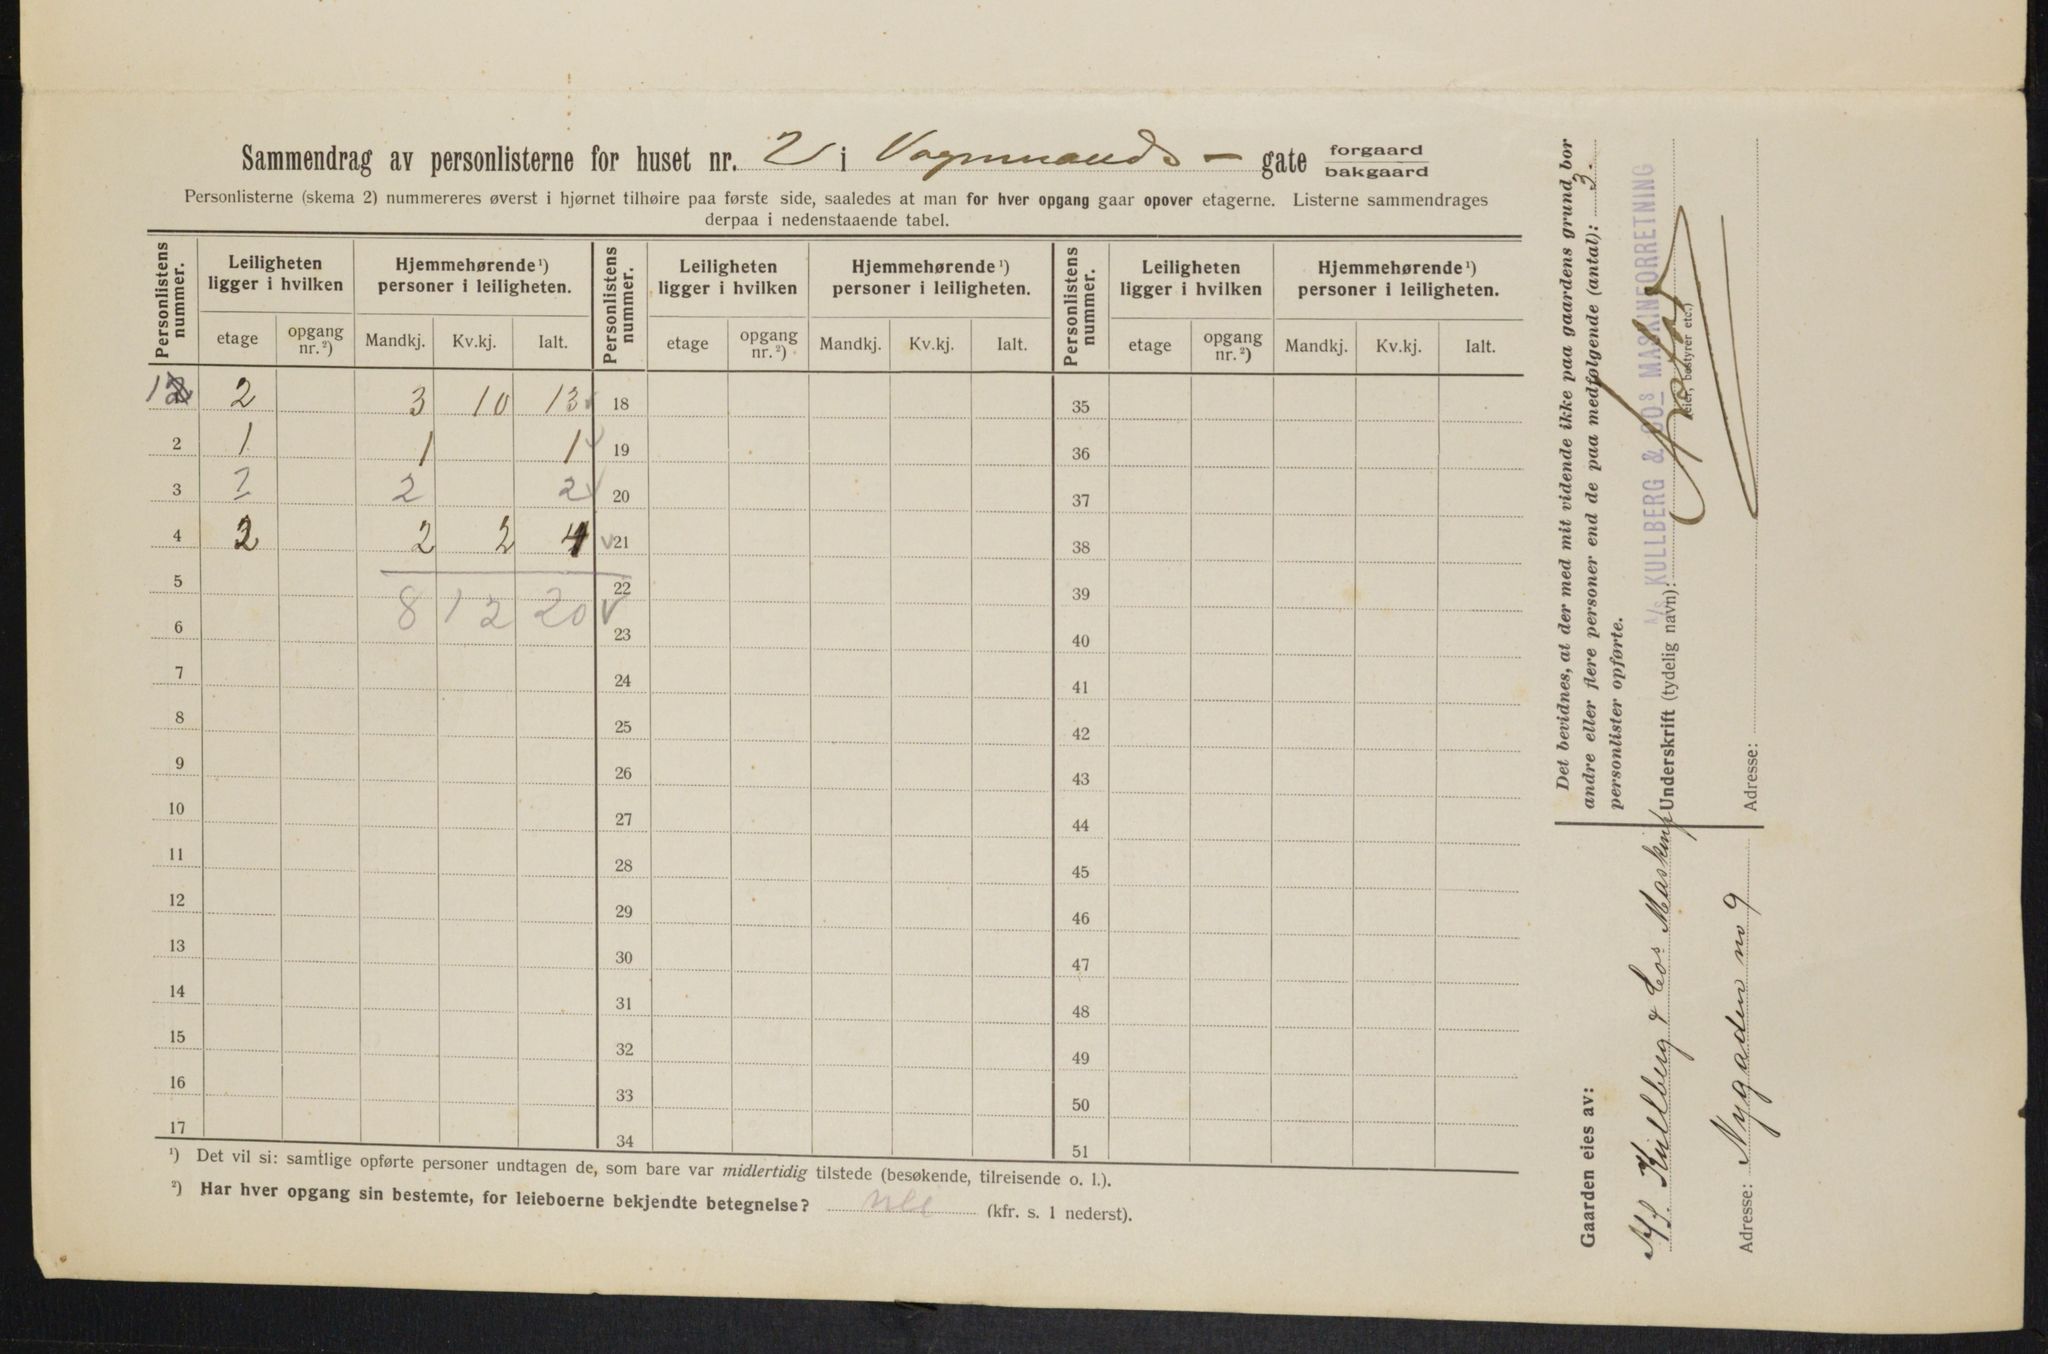 Sammendrag av personlisterne for huset nr. 2 i Vognmands - gate forgaard bakgaard
Personlisterne (skema 2) nummereres øverst i hjørnet tilhøire paa første side, saaledes at man for hver opgang gaar opover etagerne. Listerne sammendrages
derpaa i nedenstaaende tabel.
Personlistens nummer. Leiligheten ligger i hvilken Hjemmehørende ¹) personer i leiligheten. Personlistens nummer. Leiligheten ligger i hvilken Hjemmehørende ¹) personer i leiligheten. Personlistens nummer. Leiligheten ligger i hvilken Hjemmehørende ¹) personer i leiligheten.
etage opgang nr. ²) Mandkj. Kv.kj. Ialt. etage opgang nr. ²) Mandkj. Kv.kj. Ialt. etage opgang nr. ²) Mandkj. Kv.kj. Ialt.
1 2 3 10 13 18 35
2 1 1 1 19 36
3 2 2 2 20 37
4 2 2 2 4 21 38
5 22 39
8 12 20
6 23 40
7 24 41
8 25 42
9 26 43
10 27 44
11 28 45
12 29 46
13 30 47
14 31 48
15 32 49
16 33 50
17 34 51
¹) Det vil si: samtlige opførte personer undtagen de, som bare var midlertidig tilstede (besøkende, tilreisende o. l.).
²) Har hver opgang sin bestemte, for leieboerne bekjendte betegnelse? nei (kfr. s. 1 nederst).
Gaarden eies av:
A/S. Kullberg & Cos Maskinf
Adresse: Nygaden no 9
Det bevidnes, at der med mit vidende ikke paa gaardens grund bor
andre eller flere personer end de paa medfølgende (antal): 3.
personlister opførte.
A/S KULLBERG & COS MASKINFORRETNING
Underskrift (tydelig navn):
(eier, bestyrer etc.)
Adresse: